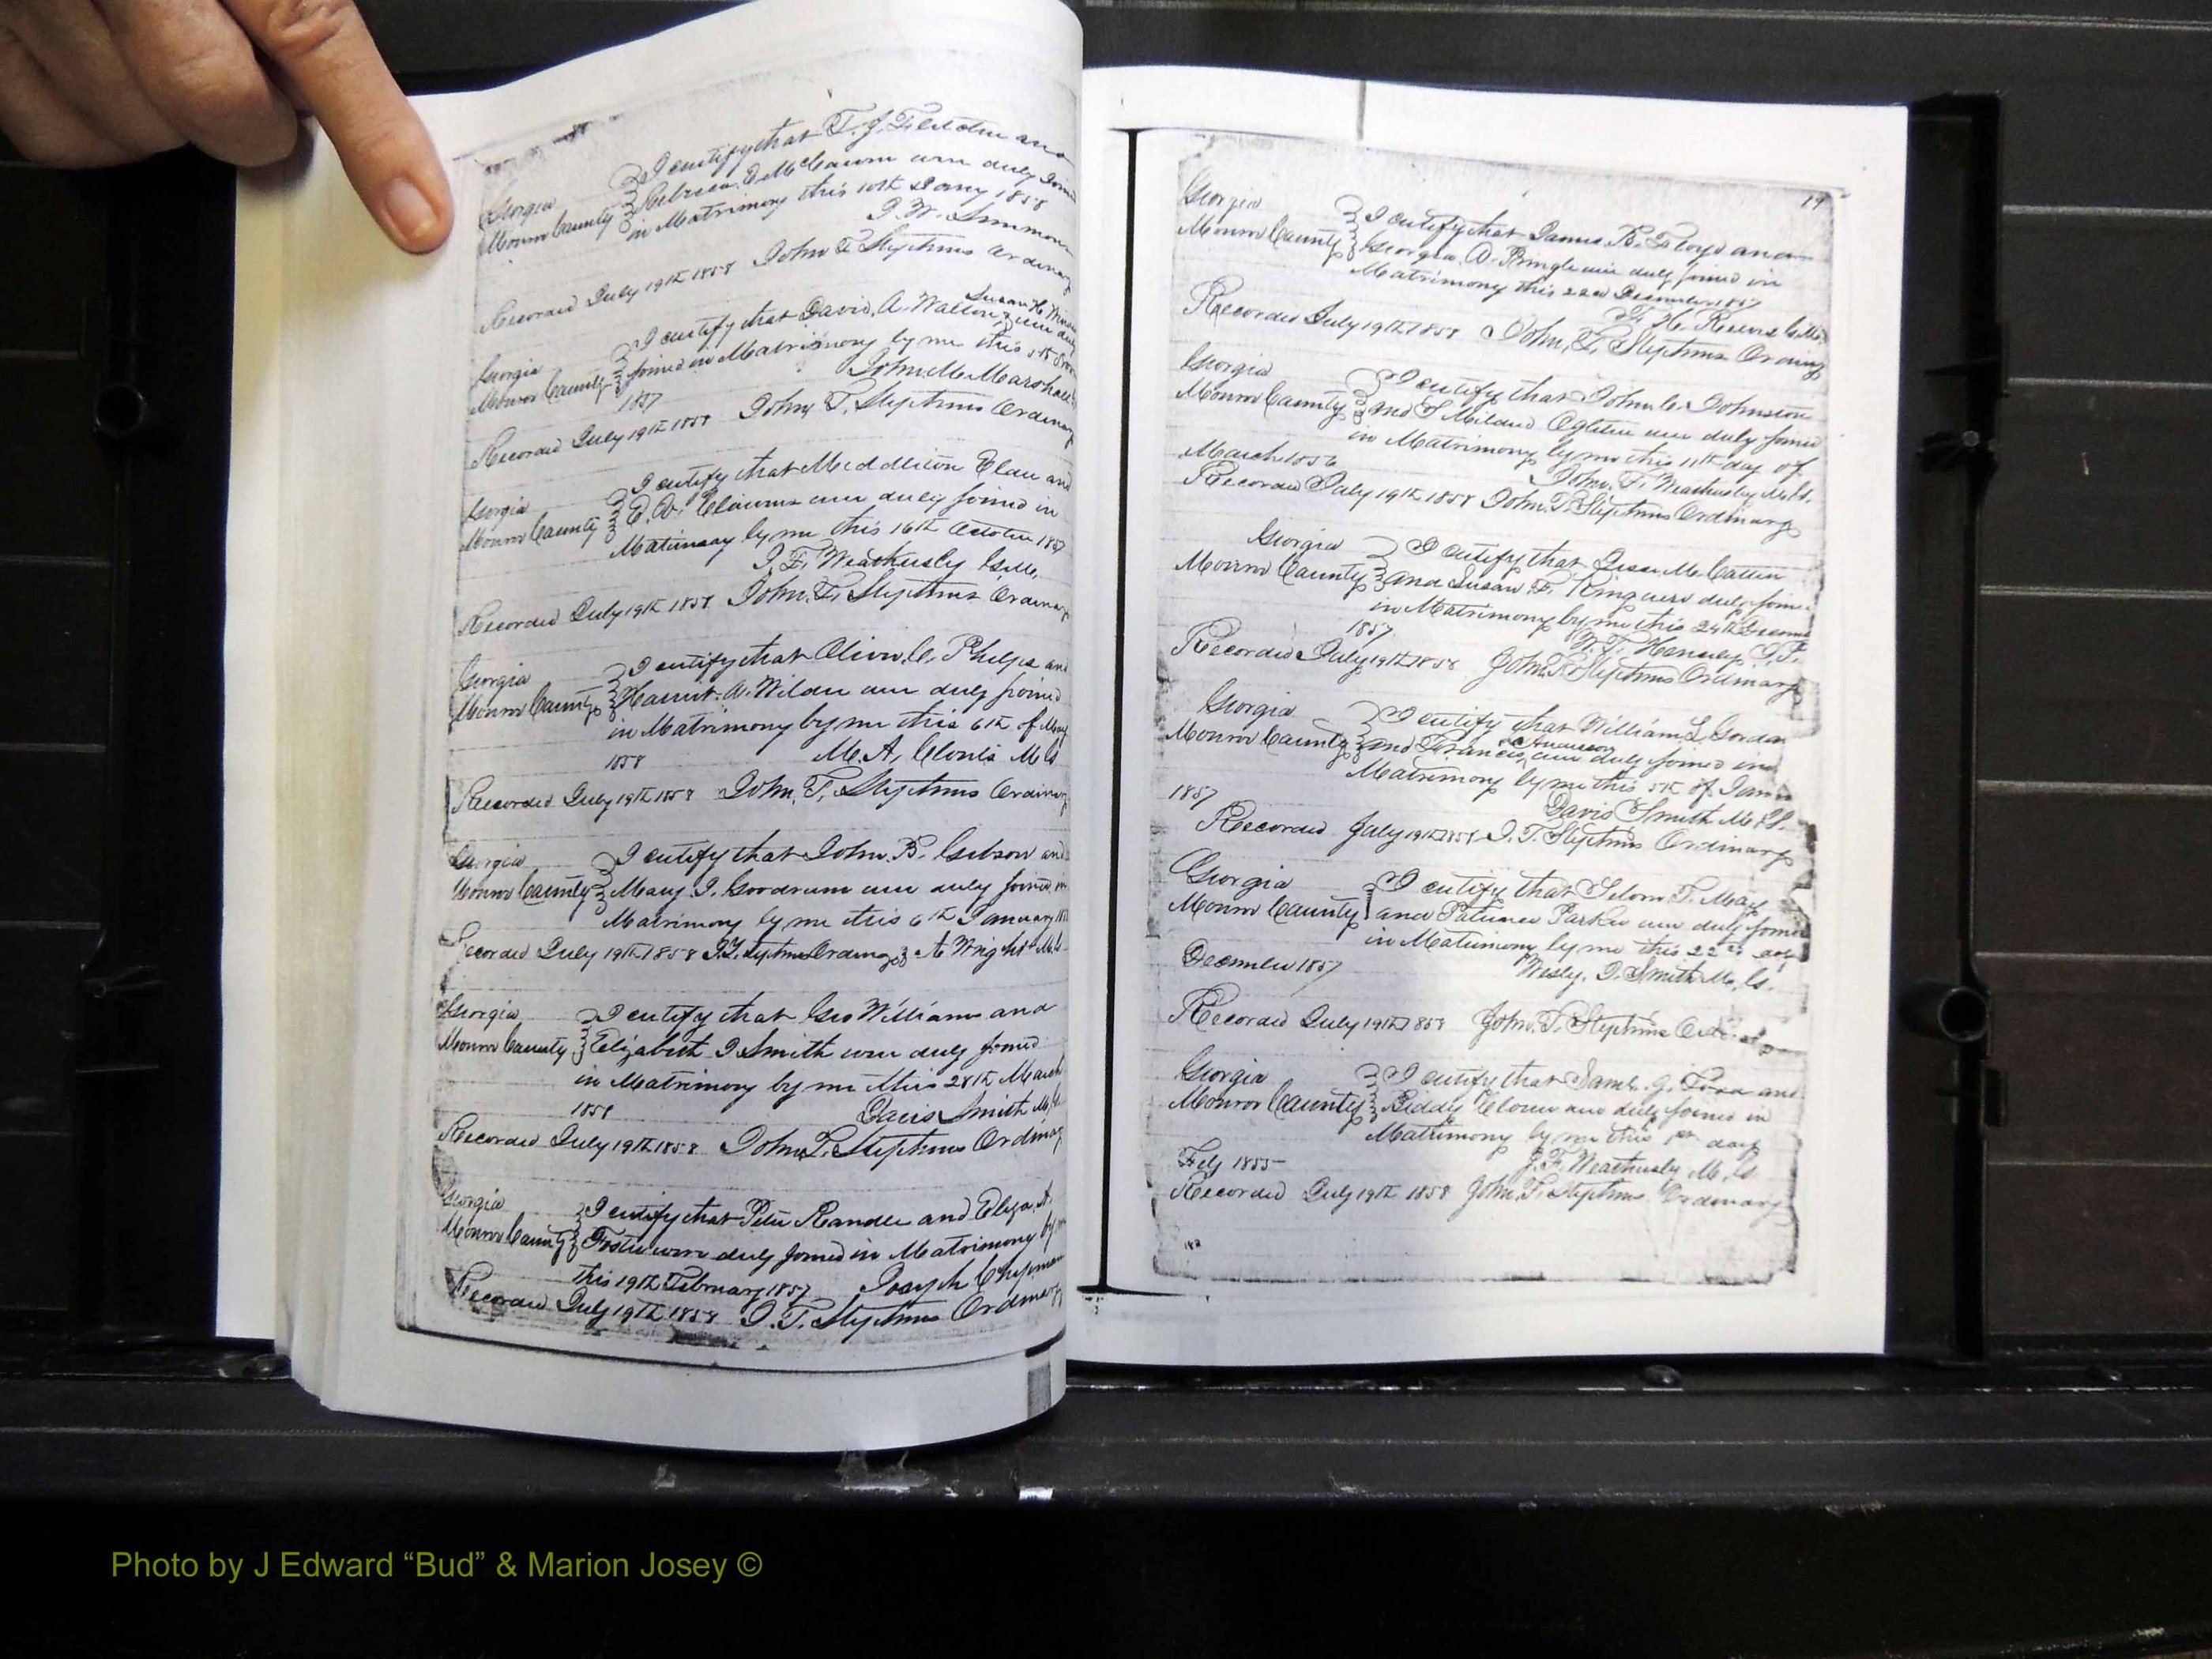 Georgia
Monroe County
I certify that T. J. Fletcher and
E. McCowen were duly joined
in Matrimony this 10th Jany 1858
J. W. Simmons
Recorded July 19th 1858 John T. Stephens Ordinary
Georgia
Monroe County
I certify that David. A. Walton & Susan H. were duly
joined in Matrimony by me this 5th
1857
John M. Marshall
Recorded July 19th 1858 John T. Stephens Ordinary
Georgia
Monroe County
I certify that Middleton and
E. W. were duly joined in
Matrimony by me this 16th October 1857
J. F. Weathersby
Recorded July 19th 1858 John. T. Stephens Ordinary
Georgia
Monroe County
I certify that Oliver. C. Phelps and
Harriet. A. Wilder were duly joined
in Matrimony by me this 6th of May
1858
M. A, Clonts M G
Recorded July 19th 1858 John, T, Stephens Ordinary
Georgia
Monroe County
I certify that John. B. Gibson and
Mary J. Goodrum were duly joined in
Matrimony by me this 6th January
Recorded July 19th 1858 J. T. Stephens Ordinary A Wright M.G.
Georgia
Monroe County
I certify that Geo Williams and
Elizabeth J Smith were duly joined
in Matrimony by me this 28th March
1858
Davis Smith M, G
Recorded July 19th 1858 John T. Stephens Ordinary
Georgia
Monroe County
I certify that Peter Randle and Eliza. A.
Foster were duly joined in Matrimony by me
this 19th February 1857 Joseph Chipman
Recorded July 19th 1858 J. T. Stephens Ordinary
19
Georgia
Monroe County
I certify that James. B. Floyd and
Georgia. A. Pringle were duly joined in
Matrimony this 22nd December 1857
Recorded July 19th 1858 John, T. Stephens Ordinary
Georgia
Monroe County
I certify that John C. Johnston
and S Mildred Ogletree were duly joined
in Matrimony by me this 11th day of
March 1856
John. F. Weathersby M. G.
Recorded July 19th 1858 John. T. Stephens Ordinary
Georgia
Monroe County
I certify that
and Susan F. King were duly joined
in Matrimony by me this 24th December
1857
Recorded July 19th 1858 John T. Stephens Ordinary
Georgia
Monroe County
I certify that William L. Gordon
and Francis Anderson were duly joined in
Matrimony by me this 5th of
1857
Davis Smith M. G.
Recorded July 19th 1858 J. T. Stephens Ordinary
Georgia
Monroe County
I certify that T. May
and Parker were duly joined
in Matrimony by me this 22nd day
December 1857
Wesly. J. Smith M, G.
Recorded July 19th 1858 John. T. Stephens Ordinary
Georgia
Monroe County
I certify that Saml. J. and
Biddy were duly joined in
Matrimony by me this 1st day
Feby 1855
J. F. Weathersby M, G
Recorded July 19th 1858 John. T. Stephens Ordinary
Photo by J Edward “Bud” & Marion Josey ©